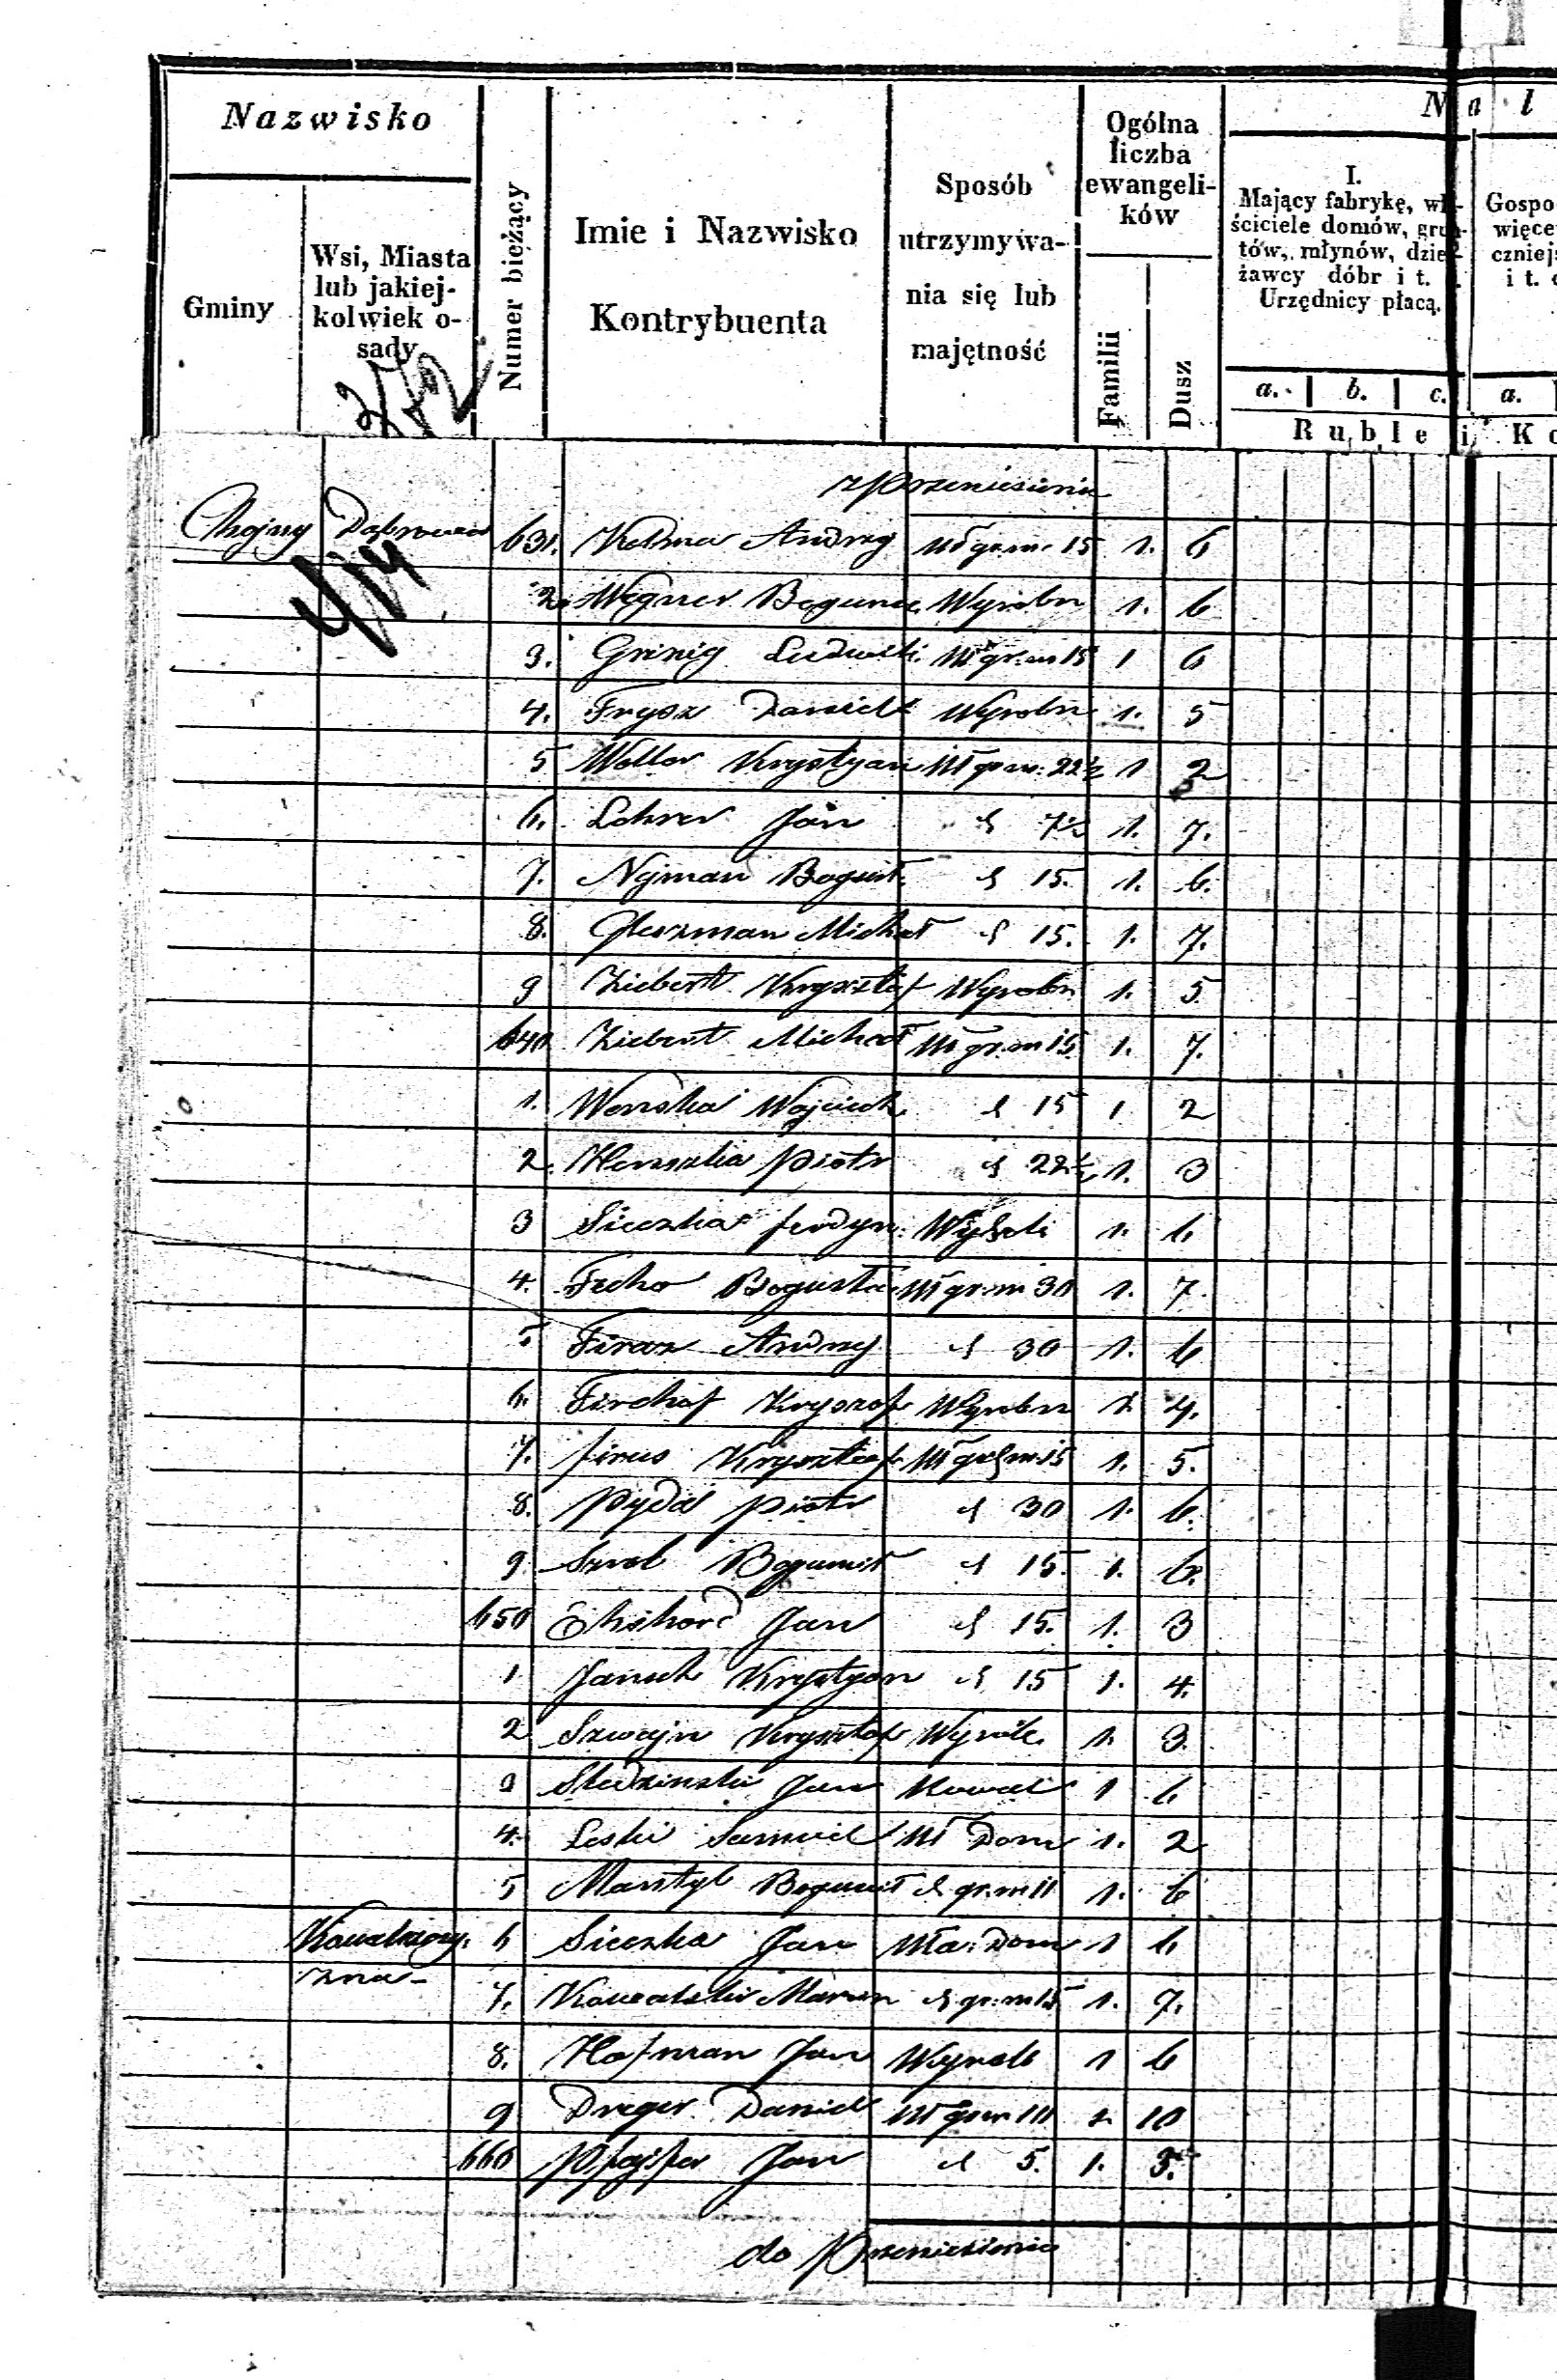 Nazwisko
Gminy
Wsi, Miasta
lub jakiej-
kolwiek o-
sady
Numer bieżący
Imie i Nazwisko
Kontrybuenta
Sposób
utrzymywa-
nia się lub
majętność
Ogólna
liczba
ewangeli-
ków
Familii
Dusz
N a l
I.
Mający fabrykę, wł-
ściciele domów, grun-
tów, młynów, dzie-
żawcy dóbr i t.
Urzędnicy płacą.
a. b. c.
Ruble i Ko
Gospo
więce
czniej
i t.
a.
z Przeniesienia
Chojny Dąbrowa 631. Andrzej Wł gr. m. 15 1. 6
2. Wegner Bogumił Wyrobn 1. 6
3. Ludwik Wł gr. m 15 1 6
4. Frysz Daniel Wyrobn 1. 5
5 Weller Krystyan Wł gr m. 22½ 1 2
6. Lehrer Jan d 7½ 1. 7.
7. Nejman Bogusł. d 15. 1. 6.
8. Gleszman Michał d 15. 1. 7.
9 Ziebert Krysztof Wyrobn 1. 5
640 Ziebert Michał Wł gr. m 15 1. 7.
1. Wojciech d 15 1 2
2. Piotr d 22½ 1. 3
3 Sieczka Ferdyn. 1. 6
4. Bogusław Wł gr. m 30 1. 7.
5 Andrzej d 30 1. 6
6. Firchof Krysztof Wyrobn 1. 4.
7. Krysztof Wł gr m. 15 1. 5.
8. Pydd Piotr d 30 1. 6.
9. Bogumił d 15. 1. 6.
650 Jan d 15. 1. 3
1 Krystyan d 15 1. 4.
2 Szwajn Krysztof Wyrob. 1. 3.
3 Jan Kowal 1 6
4. Leski Samuel Wł Dom 1. 2
5 Bogumił d gr. m 11 1. 6
Kowalszczy-
zna 6 Sieczka Jan Wła. Dom 1 6
7. Kowalski Marcin d gr. m 15 1. 7.
8. Hofman Jan Wyrob 1 6
9 Dreger Daniel Wł gr m 2. 10
660 Pfajfer Jan d 5. 1. 5.
do Przeniesienia